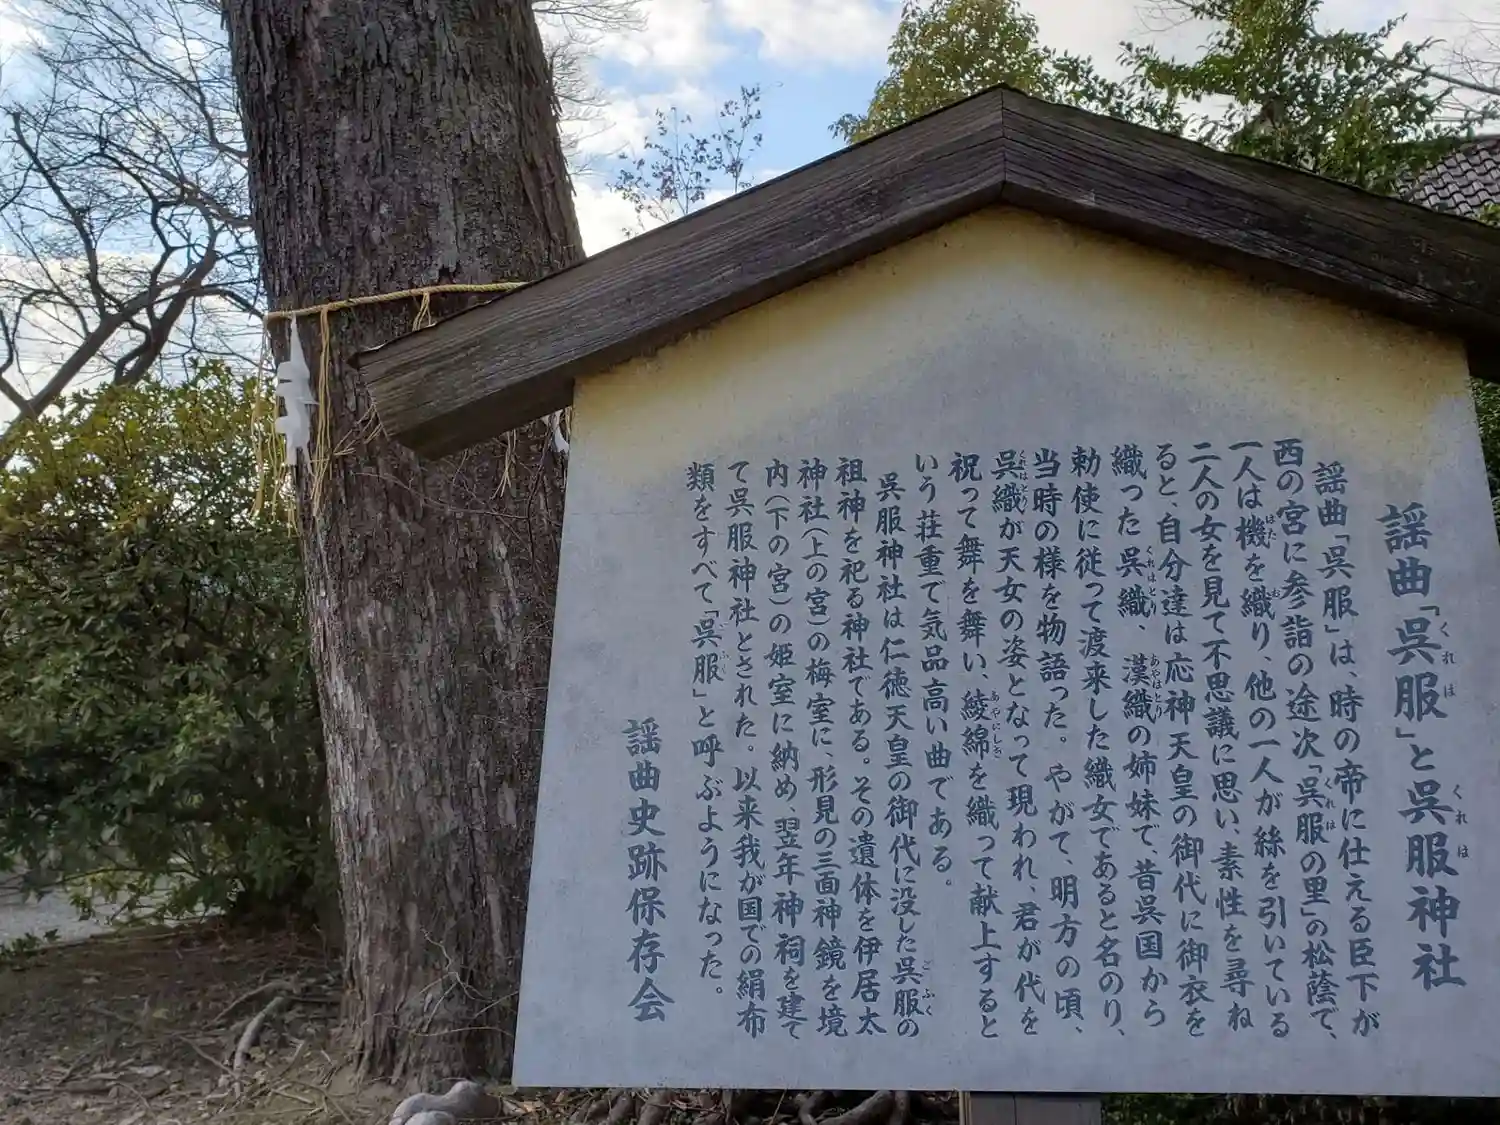 謡曲「呉服」と呉服神社
謡曲「呉服」は、時の帝に仕える臣下が
西の宮に参詣の途次「呉服の里」の松蔭で、
一人は機を織り、他の一人が絲を引いている
二人の女を見て不思議に思い、素性を尋ね
ると、自分達は応神天皇の御代に御衣を
織った呉織、漢織の姉妹で、昔呉国から
勅使に従って渡来した織女であると名のり、
当時の様を物語った。やがて、明方の頃、
呉織が天女の姿となって現われ、君が代を
祝って舞を舞い、綾綿を織って献上すると
いう荘重で気品高い曲である。
呉服神社は仁徳天皇の御代に没した呉服の
祖神を祀る神社である。その遺体を伊居太
神社(上の宮)の梅室に、形見の三面神鏡を境
内(下の宮)の姫室に納め、翌年神祠を建て
て呉服神社とされた。以来我が国での絹布
類をすべて「呉服」と呼ぶようになった。
謡曲史跡保存会